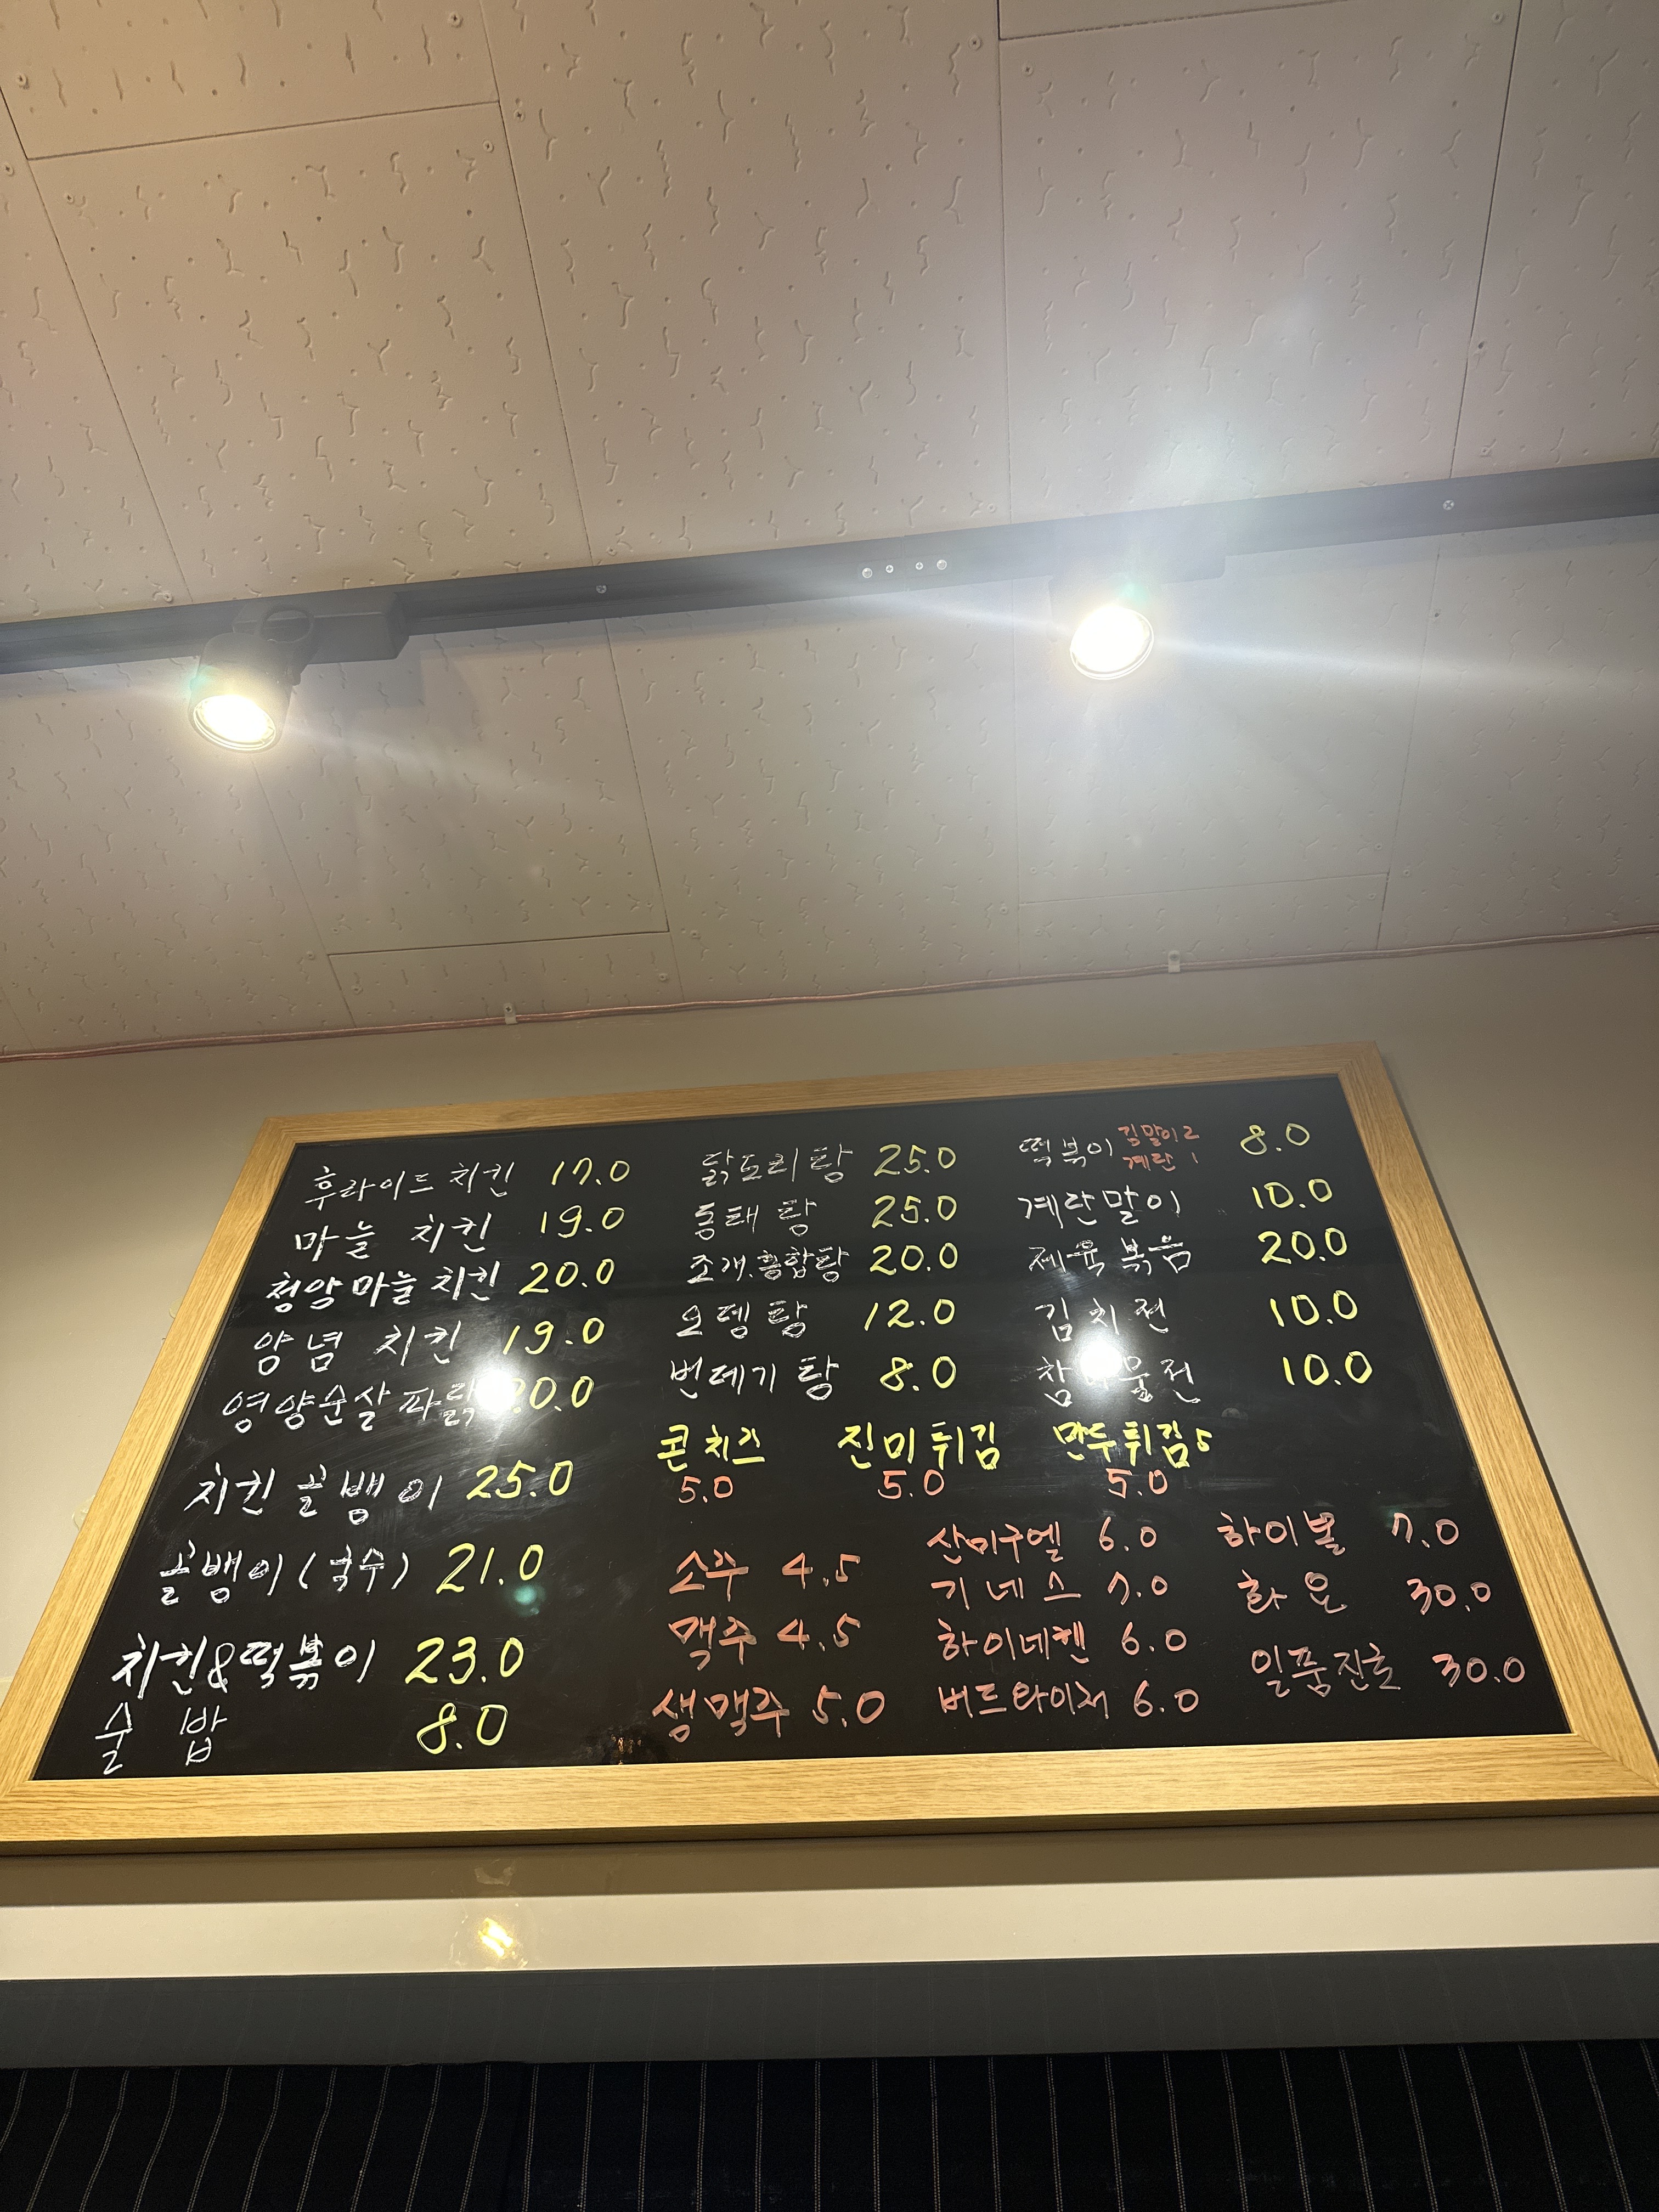 후라이드 치킨 17.0
마늘 치킨 19.0
청양마늘 치킨 20.0
양념 치킨 19.0
영양순살 파닭 0.0
치킨 골뱅이 25.0
골뱅이 (국수) 21.0
치킨&떡볶이 23.0
술 밥 8.0
닭도리탕 25.0
동태탕 25.0
조개.홍합탕 20.0
오뎅탕 12.0
번데기탕 8.0
떡볶이 김말이2 계란 1 8.0
계란말이 10.0
제육볶음 20.0
김치전 10.0
참 물전 10.0
콘치즈 진미튀김 만두튀김5
5.0 5.0 5.0
소주 4.5
맥주 4.5
생맥주 5.0
산미구엘 6.0
기네스 7.0
하이네켄 6.0
버드와이저 6.0
하이볼 7.0
화요 30.0
일품진로 30.0